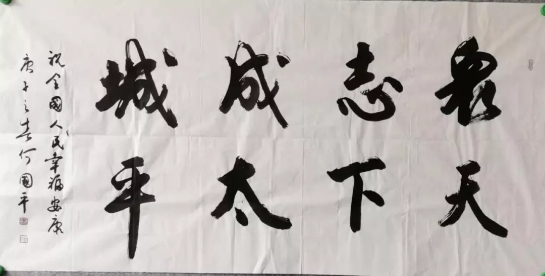 眾志成城
天下太平
祝全國人民幸福安康
庚子之春何國平